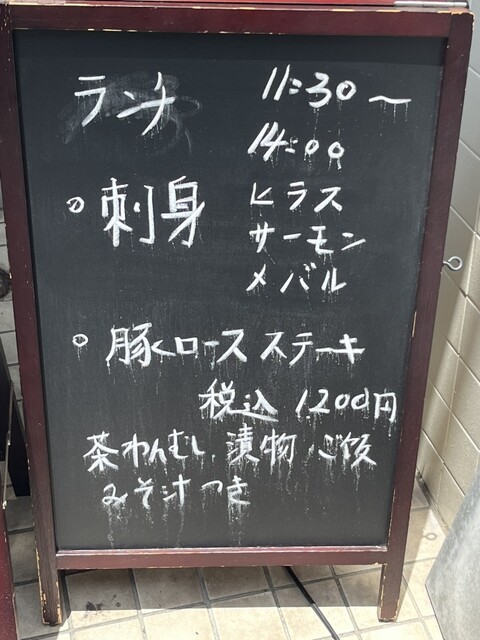 ランチ 11:30〜
14:00
○ 刺身 ヒラス
サーモン
メバル
○ 豚ロースステーキ
税込 1.200円
茶わんむし、漬物、ご飯
みそ汁つき